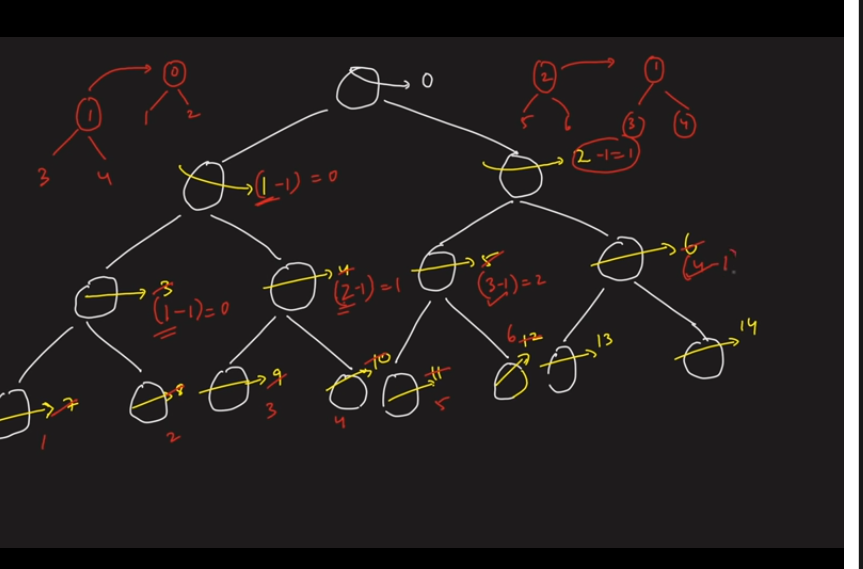 0
1
1
2
3
4
0
2
5
6
1
3
4
(1-1) = 0
2-1=1
3
(1-1)=0
4
(2-1)=1
5
(3-1)=2
6
(4-1)
7
1
8
2
9
3
10
4
11
5
6
12
13
14